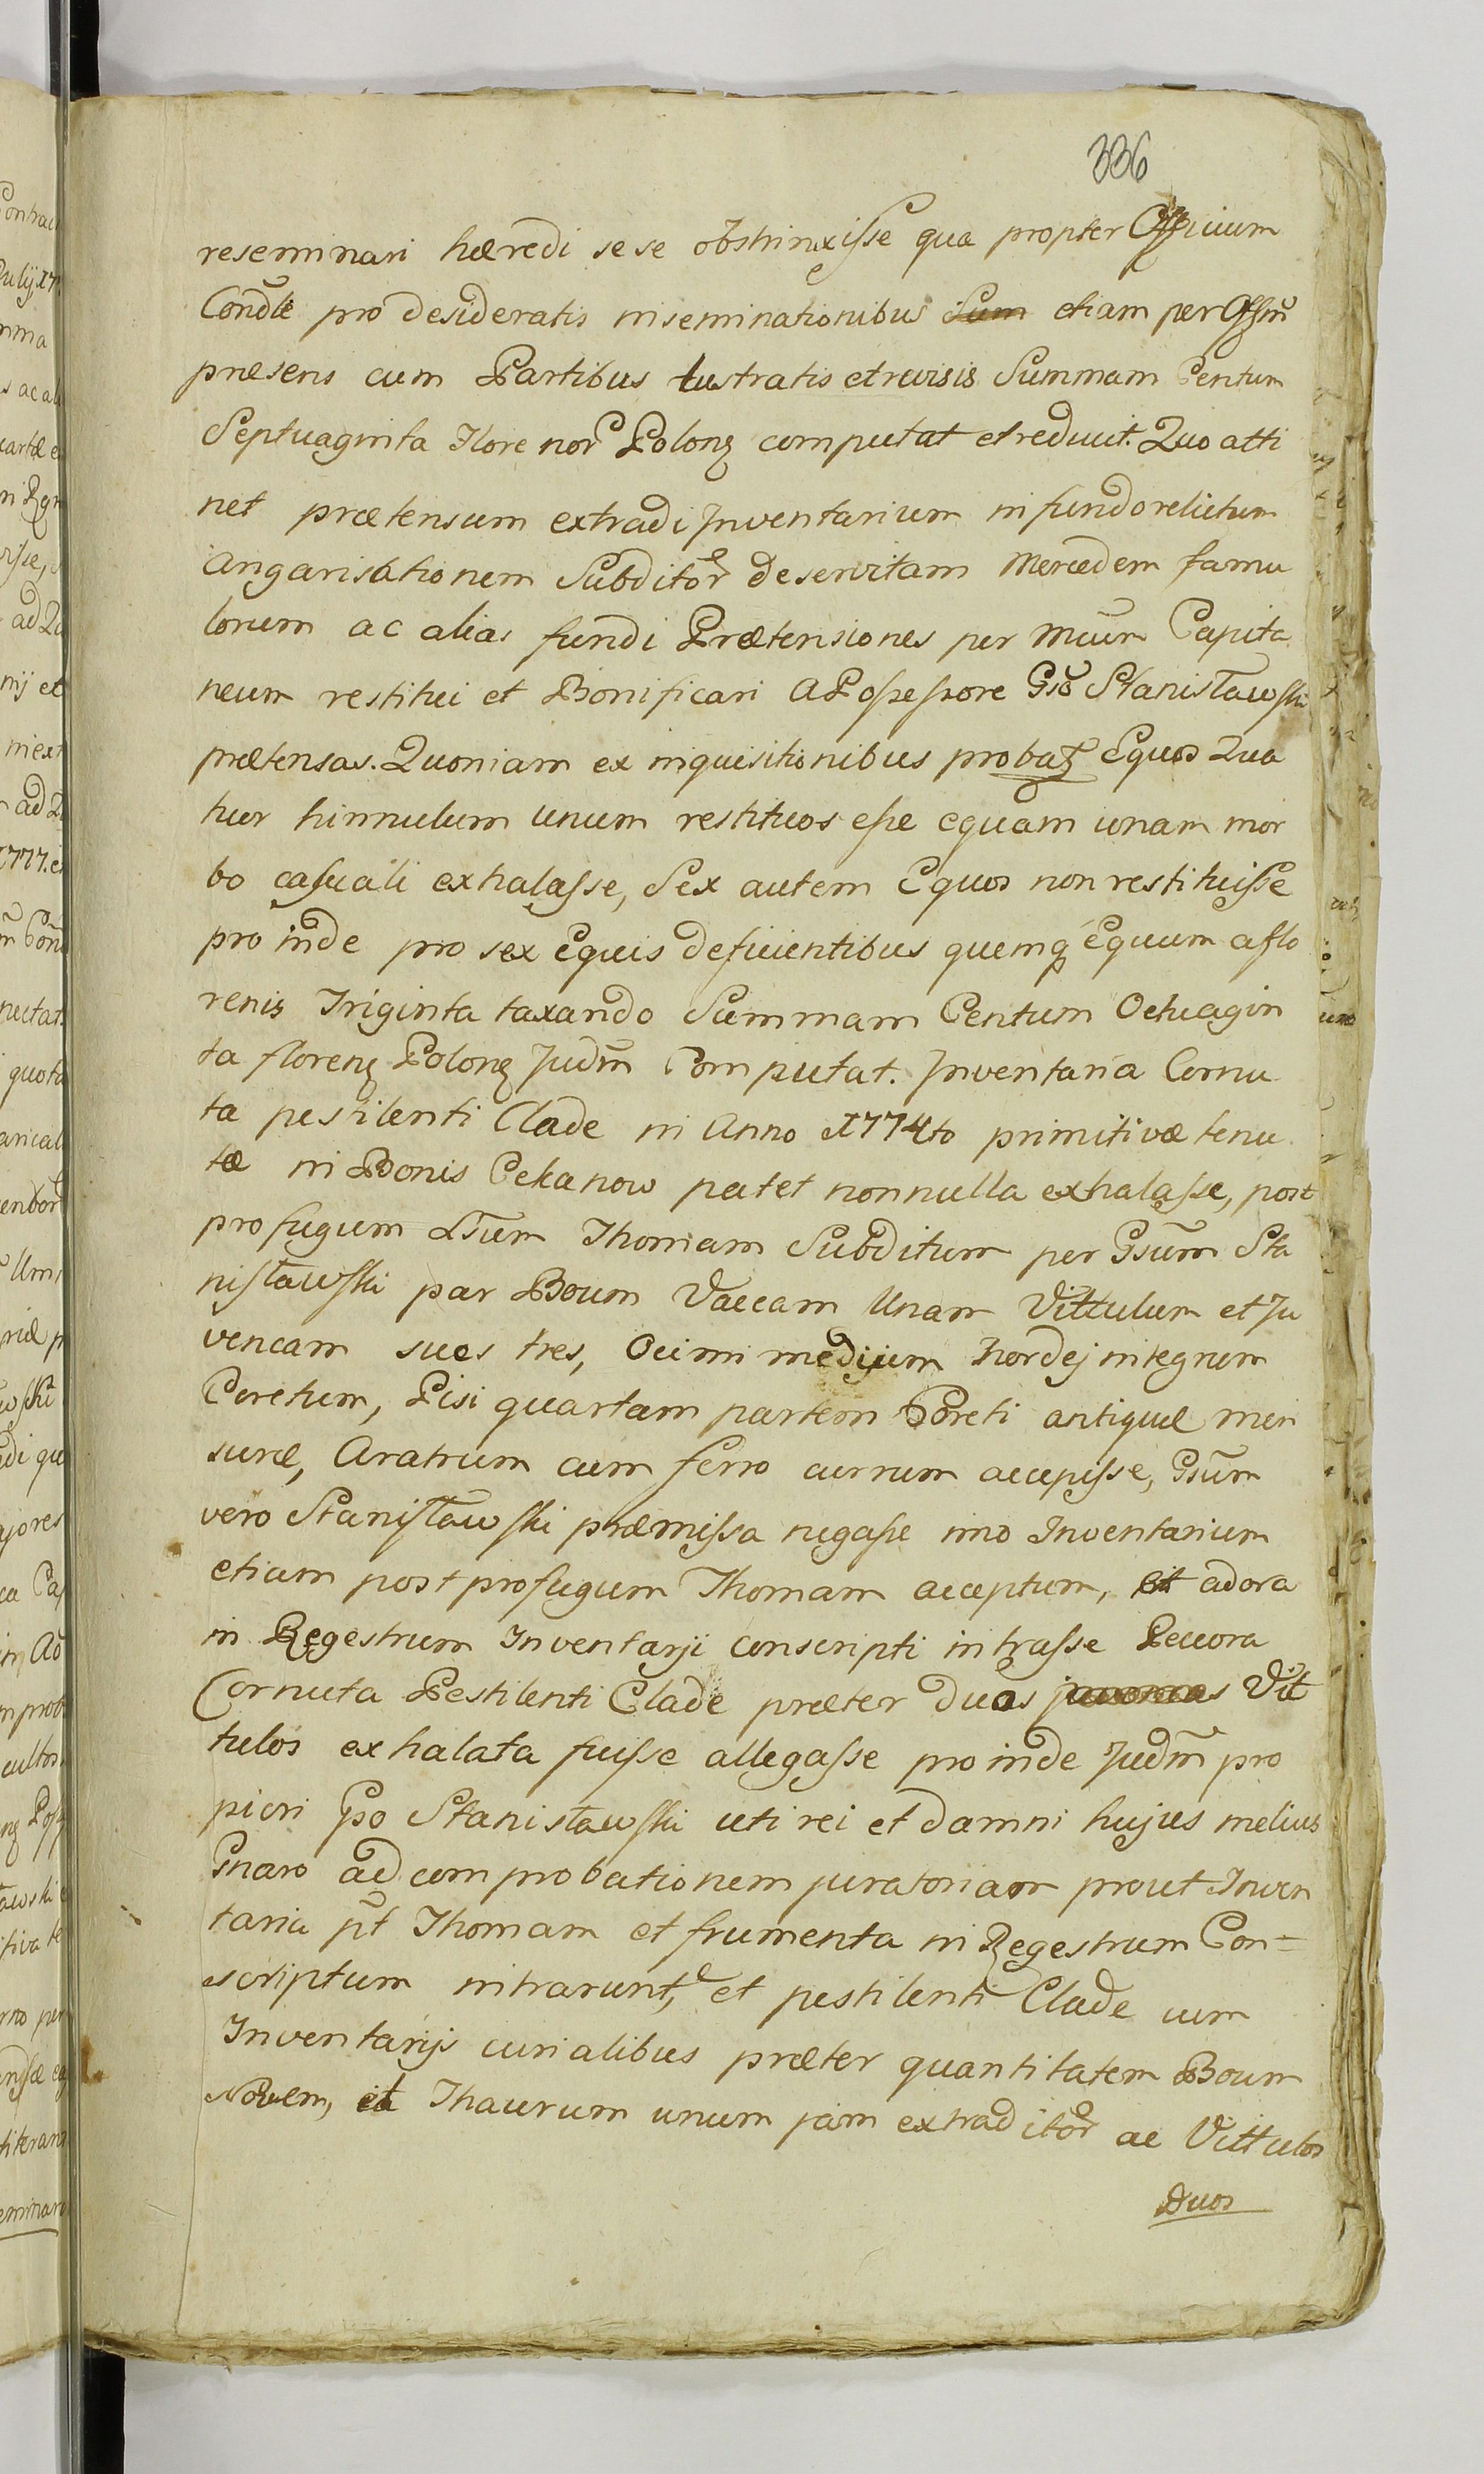 336
reseminari hæredi sese obstrinxisse qua propter Officium
Condle pro desideratis inseminationibus etiam per Offm
præsens cum Partibus lustratis et revisis Summam Centum
Septuaginta Florenor Polonz computat et reducit. Quo atti
net prætensum extradi Inventarium in fundo relictum
angarisationem Subditor deservitam Mercedem famu
lorum ac alias fundi Prætensiones per Mcum Capita
neum restitui et Bonificari a Possessore Gso Stanisławski
prætensas. Quoniam ex inquisitionibus probatz Equos Qua
tuor hinnulum unum restitutos esse equam unam mor
bo casuali exhalasse, Sex autem Equos non restituisse
pro inde pro sex Equis deficientibus quemq Equum a flo
renis Triginta taxando Summam Centum Octuagin
ta florenz Polonz Judm Computat. Inventaria Cornu
ta pestilenti Clade in Anno 1774to primitivæ tenu
tæ in Bonis Cekanow patet nonnulla exhalasse, post
profugum Thomam Subditum per Gsum Sta
nisławski par Boum Vaccam Unam Vittulum et Ju
vencam sues tres, Ocimi medium hordej integrum
Coretum, Pisi quartam partem Coreti antiquæ men
suræ, Aratrum cum ferro currum accepisse, Gsum
vero Stanisławski præmissa negasse imo Inventarium
etiam post profugum Thomam acceptum, et adora
in Regestrum Inventarji conscripti intrasse Peccora
Cornuta Pestilenti Clade præter duos Vit
tulos exhalata fuisse allegasse pro inde Judm pro
piori Gso Stanisławski uti rei et damni hujus melius
Gnaro ad comprobationem juratoriam prout Inven
taria pt Thomam et frumenta in Regestrum Con=
scriptum intrarunt, et pestilenti Clade cum
Inventarijs curialibus præter quantitatem Boum
Novem, et Thaurum unum jam extraditor ac Vittulos
Duos